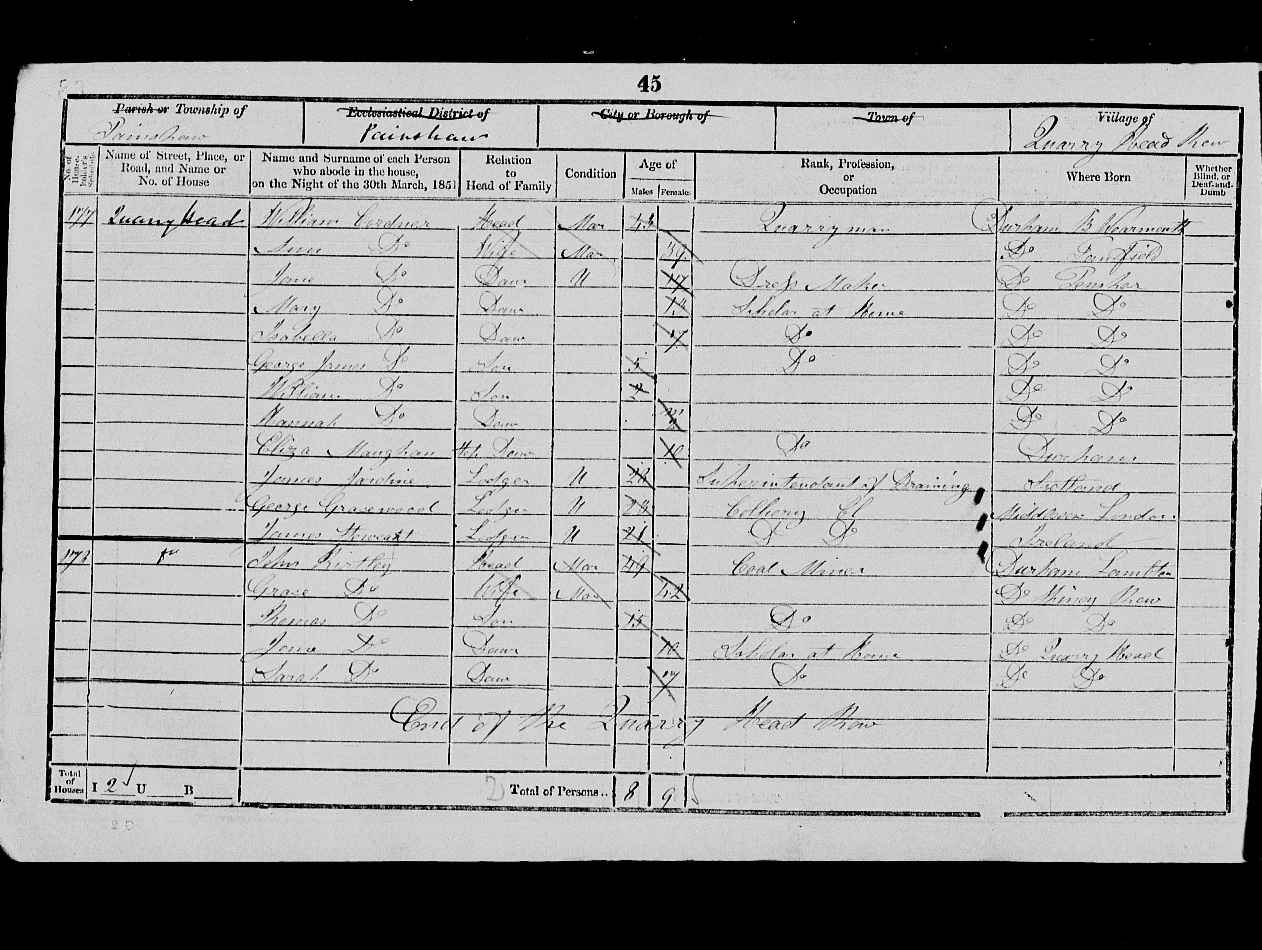 45
Parish or Township of Painshaw
Ecclesiastical District of Painshaw
City or Borough of
Town of
Village of Quarry Head Row
No. of House-holder's Schedule
Name of Street, Place, or Road, and Name or No. of House
Name and Surname of each Person who abode in the house, on the Night of the 30th March, 1851
Relation to Head of Family
Condition
Age of
Males Females
Rank, Profession, or Occupation
Where Born
Whether Blind, or Deaf-and-Dumb
177 Quarry head William Cordner Head Mar 43 Quarryman Durham B Wearmouth
Anne Do Wife Mar Do Tanfield
Jane Do Daur U 17 Dress Maker Do Penshar
Mary Do Daur 14 Scholar at Home Do Do
Isabella Do Daur Do Do Do
George James Do Son 5 Do Do Do
William Do Son Do Do
Hannah Do Daur Do Do
Eliza Maughan Step Daur 10 Do Durham
James Jardine Lodger U 28 Superintendant of Draining Scotland
George Grasewood Lodger U 28 Colliery Middlesex London
James Stewart Lodger U 21 Do Do Ireland
178 John Kirtley Head Mar 49 Coal Miner Durham Lambton
Grace Do Wife Mar 42 Do Shiney Row
Thomas Do Son 15 Do Do Do
Jane Do Daur 10 Scholar at Home Do Quarry Head
Sarah Do Daur Do Do Do
End of the Quarry Head Row
Total of Houses I 2 U B
Total of Persons.. 8 9